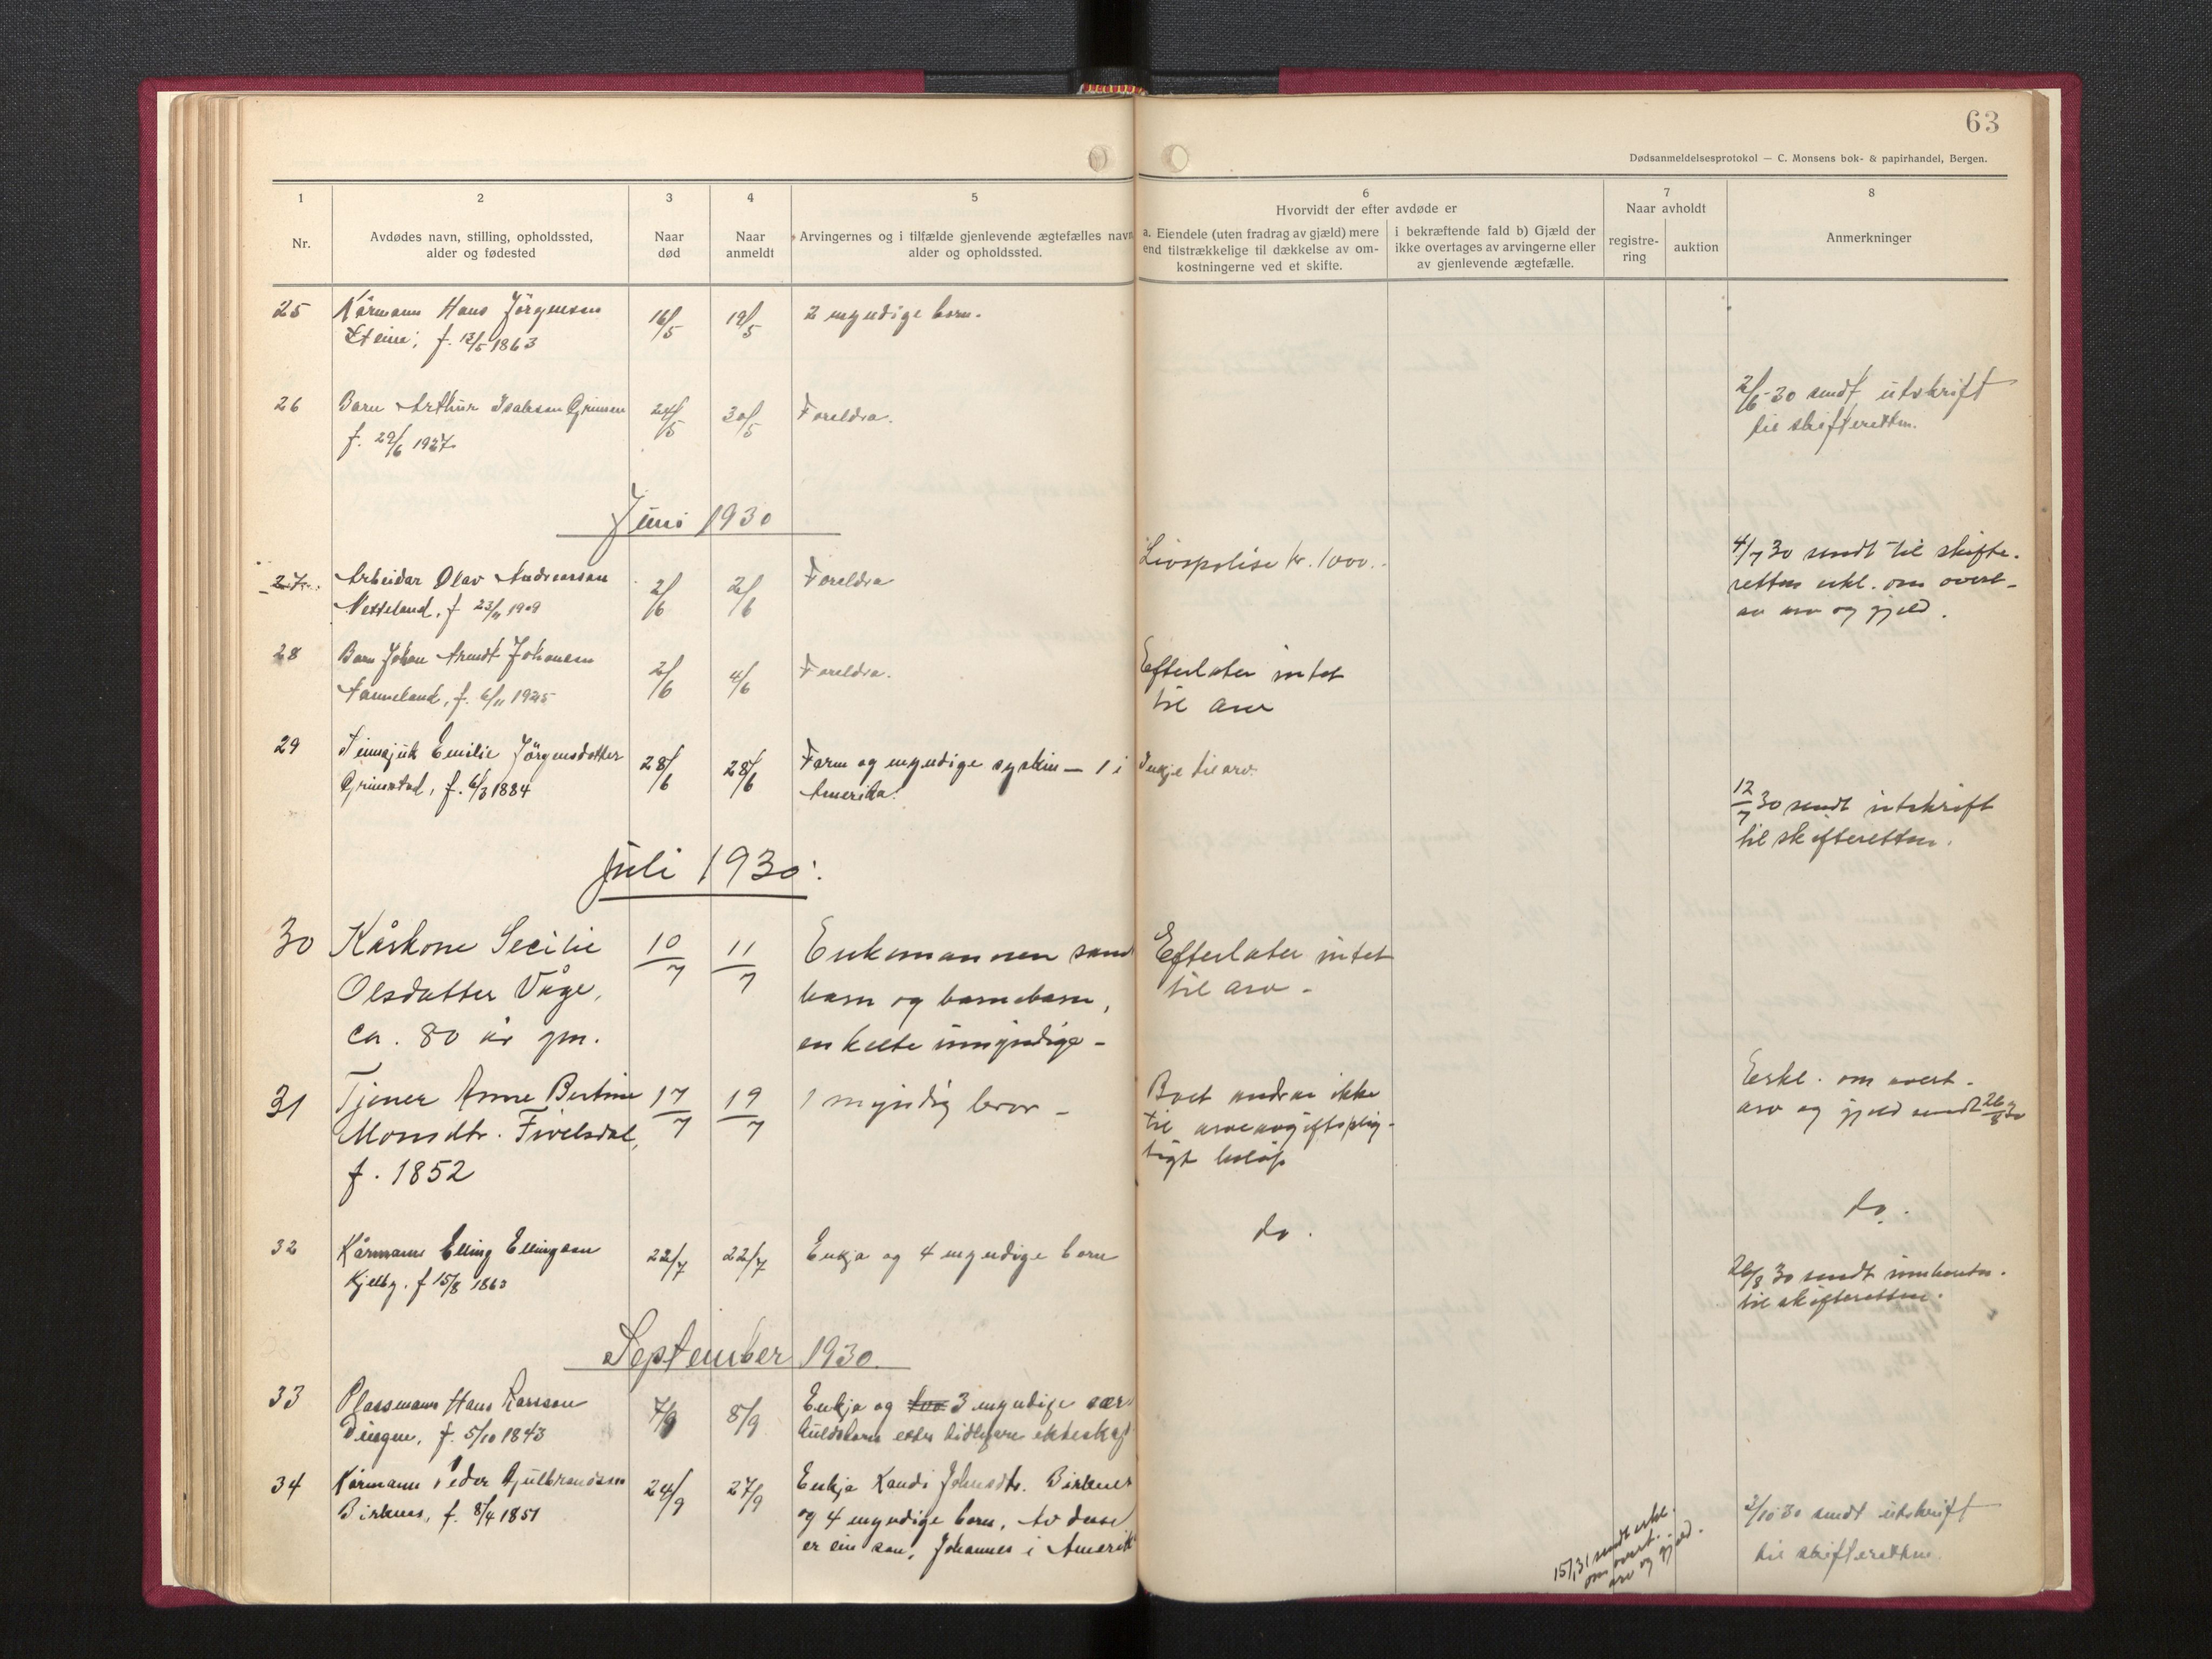 63
Dødsanmeldelsesprotokol — C. Monsens bok- & papirhandel, Bergen.
1 2 3 4 5 6 7 8
Nr.
Avdødes navn, stilling, opholdssted,
alder og fødested
Naar
død
Naar
anmeldt
Arvingernes og i tilfælde gjenlevende ægtefælles navn
alder og opholdssted.
Hvorvidt der efter avdøde er
a. Eiendele (uten fradrag av gjæld) mere
end tilstrækkelige til dækkelse av om-
kostningerne ved et skifte.
i bekræftende fald b) Gjæld der
ikke overtages av arvingerne eller
av gjenlevende ægtefælle.
Naar avholdt
registre-
ring
auktion
Anmerkninger
25 Kårmann Hans Jörgensen 16/5 19/5 2 myndige born.
f. 13/5 1863
26 Barn Arthur Isaksen 24/5 30/5 Foreldra.
f. 29/6 1927
2/6-30 sendt utskrift
til skifteretten.
Juni 1930
27. Arbeidar Olav Andreassen 2/6 2/6 Foreldra Livspolise kr. 1000.
Nesseland, f. 23/11 1909
4/7 30 sendt til skifte-
retten erkl. om overt-
av arv og gjeld.
28 Barn Johan Arndt Johansen 2/6 4/6 Foreldra. Efterlater intet
Nanneland, f. 6/11 1925 til arv
29 Emilie Jörgensdotter 28/6 28/6 Farm og myndige syskin — 1 i Inkje til arv.
Grimstad, f. 6/3 1884 Amerika.
12/7 30 sendt utskrift
til skifteretten.
Juli 1930.
30 Kårkone Secilie 10/7 11/7 Enkemannen samt Efterlater intet
Olsdatter Våge, barn og barnebarn, til arv -
ca. 80 år gm. enkelte umyndige -
31 Tjener Anne Bertine 17/7 19/7 1 myndig bror - Boet andrar ikke
Monsdtr. Fivelsdal, til arveavgiftsplig-
f. 1852 tigt beløp
Erkl. om overt.
arv og gjeld sendt 26/8 30
32 Kårmann Elling Ellingsen 22/7 22/7 Enkja og 4 myndige born do.
Kjelby. f 15/8 1863
do.
26/8 30 sendt
til skifteretten.
September 1930.
33 Plassmann Hans Larsson 7/9 8/9 Enkja og too 3 myndige sær-
f. 5/10 1843 kuldsborn etter tidlegare ekteskap
34 Kårmann Peder Gulbrandsen 24/9 27/9 Enkja Johnsdtr. Birknes
Birknes, f. 8/4 1851 og 4 myndige born, Av desse
er ein son, Johannes i Amerik
15/1 31 sendt erkl.
om overt.
arv og gjeld.
2/10 30 sendt utskrift
til skifteretten.